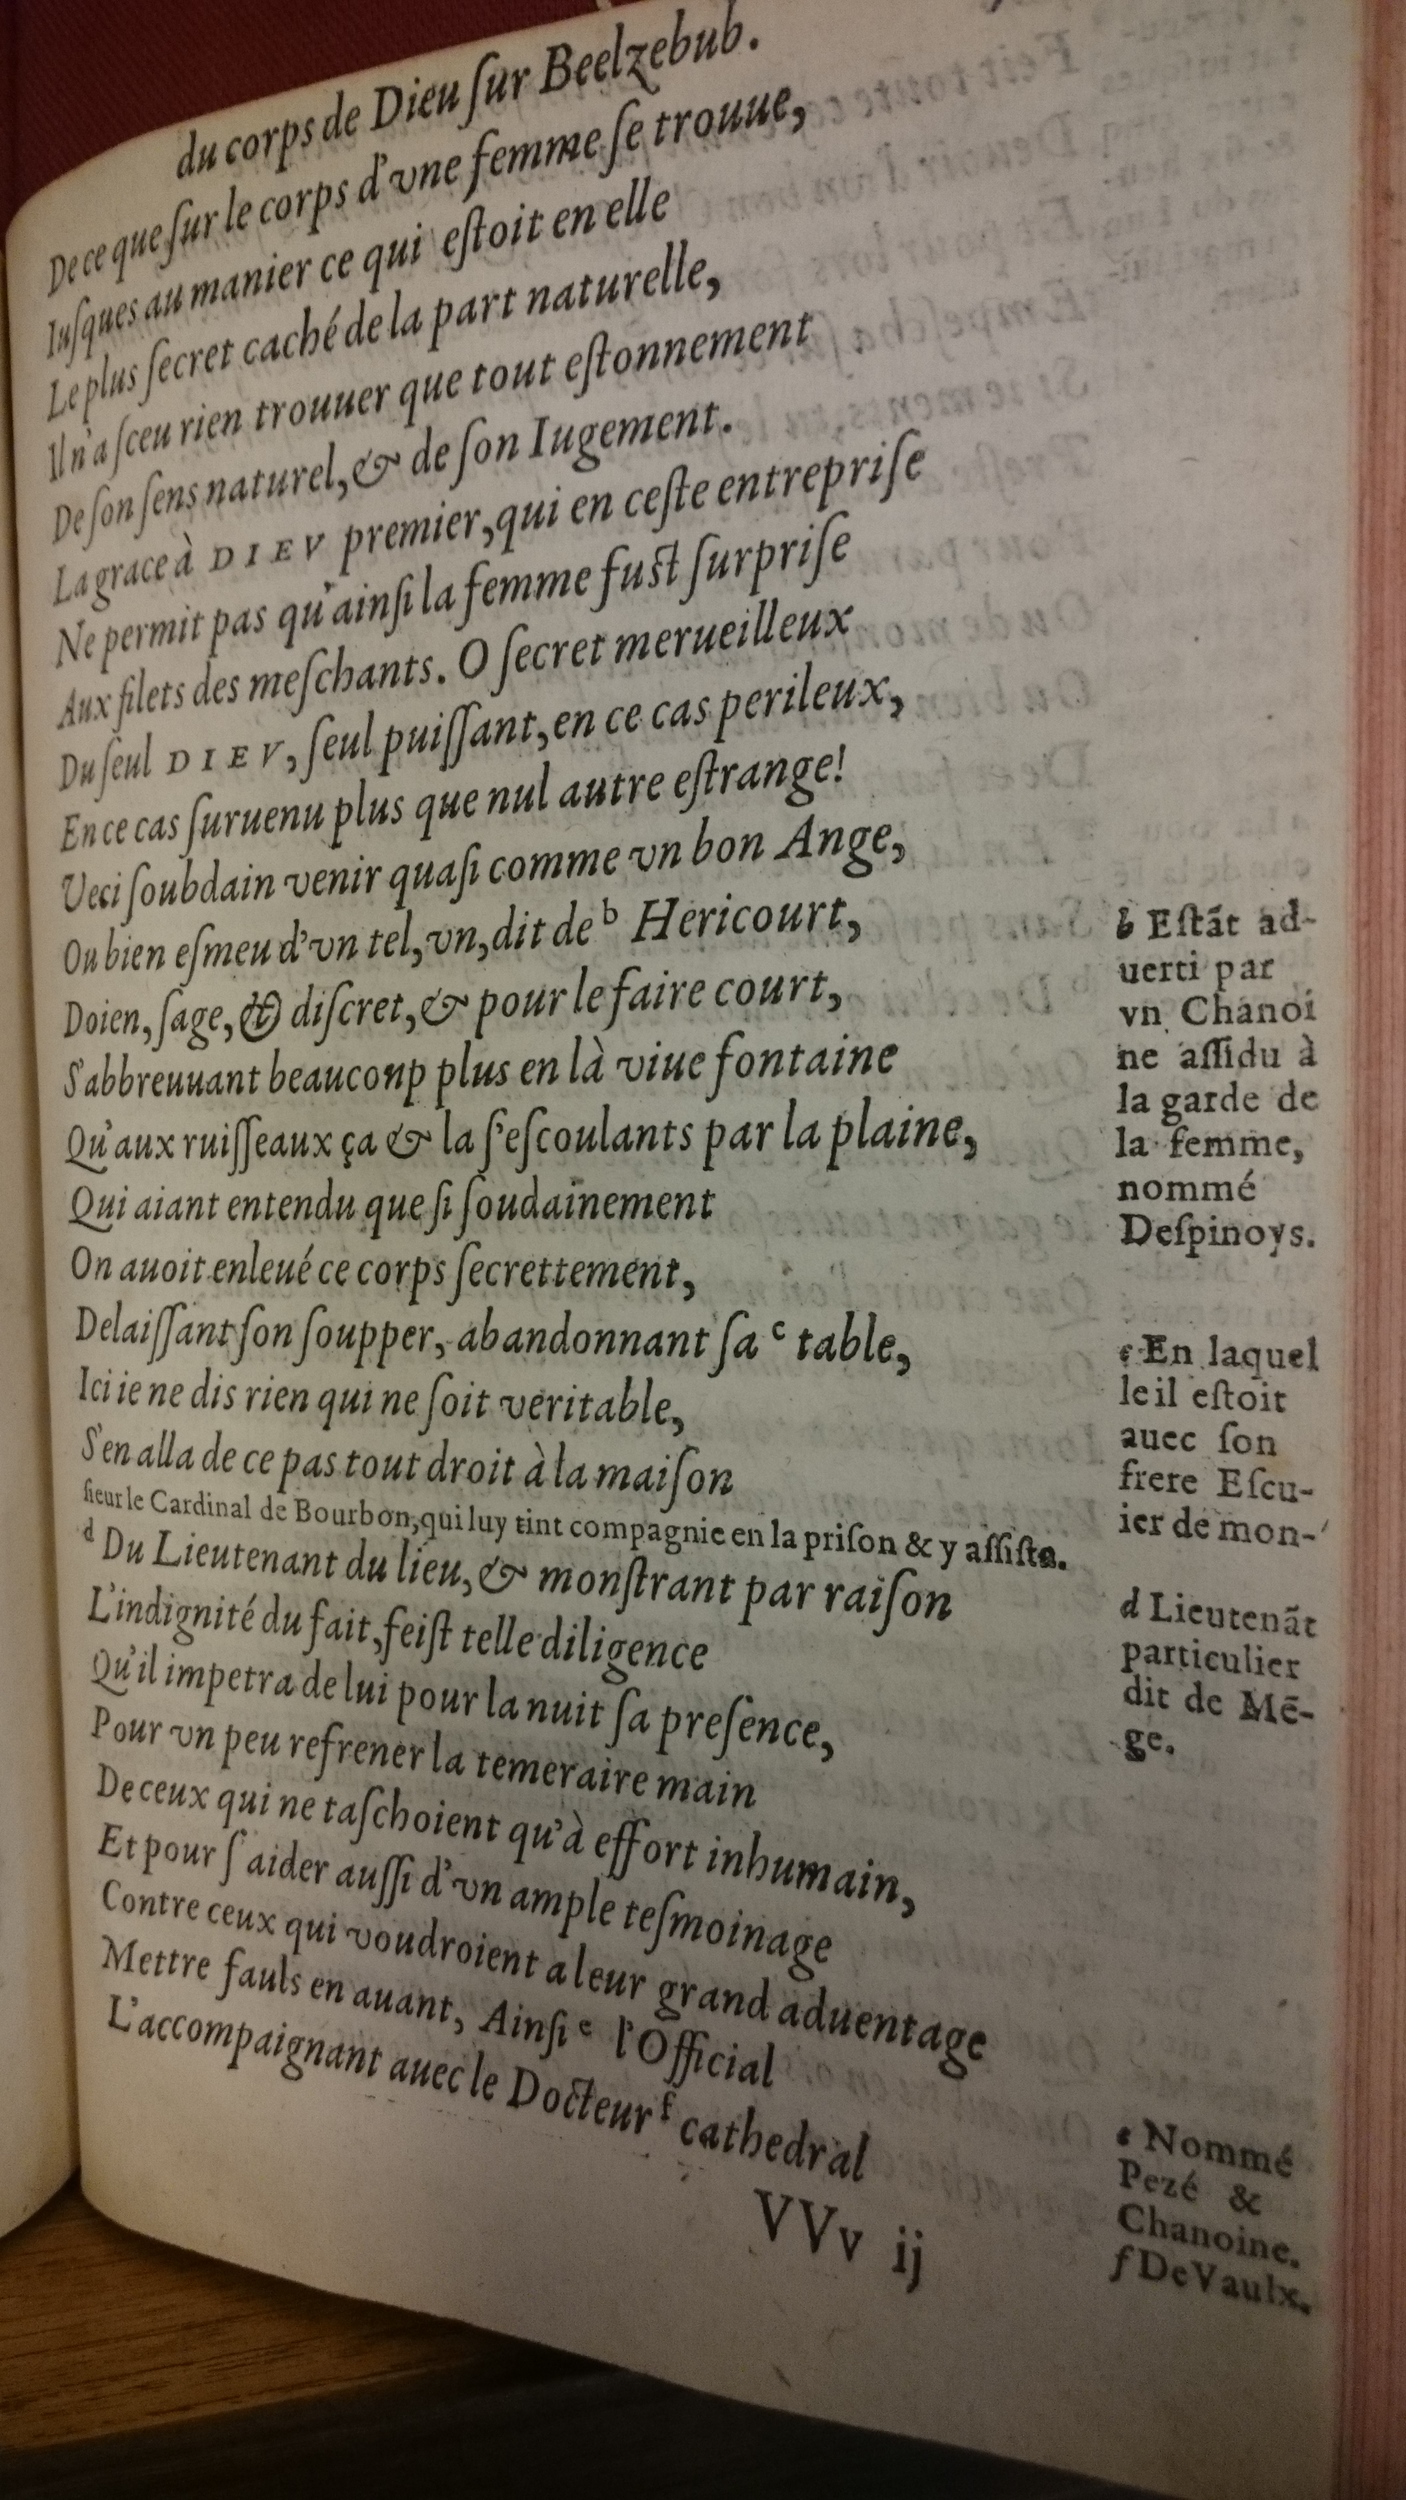 du corps de Dieu ſur Beelzebub.
De ce que ſur le corps d'vne femme ſe trouue,
Iuſques au manier ce qui eſtoit en elle
Le plus ſecret caché de la part naturelle,
Il n'a ſceu rien trouuer que tout eſtonnement
De ſon ſens naturel, & de ſon Iugement.
La grace à DIEV premier, qui en ceſte entrepriſe
Ne permit pas qu'ainſi la femme fuſt ſurpriſe
Aux filets des meſchants. O ſecret merueilleux
Du ſeul DIEV, ſeul puiſſant, en ce cas perileux,
En ce cas ſuruenu plus que nul autre eſtrange!
Veci ſoubdain venir quaſi comme vn bon Ange,
Ou bien eſmeu d'vn tel, vn, dit de b Hericourt,
Doien, ſage, & diſcret, & pour le faire court,
S'abbreuuant beaucoup plus en là viue fontaine
Qu'aux ruiſſeaux ça & la ſ'eſcoulants par la plaine,
Qui aiant entendu que ſi ſoudainement
On auoit enleué ce corps ſecrettement,
Delaiſſant ſon ſoupper, abandonnant ſa c table,
Ici ie ne dis rien qui ne ſoit veritable,
S'en alla de ce pas tout droit à la maiſon
ſieur le Cardinal de Bourbon, qui luy tint compagnie en la priſon & y aſſiſta.
d Du Lieutenant du lieu, & monſtrant par raiſon
L'indignité du fait, feiſt telle diligence
Qu'il impetra de lui pour la nuit ſa preſence,
Pour vn peu refrener la temeraire main
De ceux qui ne taſchoient qu'à effort inhumain,
Et pour ſ'aider auſſi d'vn ample teſmoinage
Contre ceux qui voudroient a leur grand aduentage
Mettre fauls en auant, Ainſi e l'Official
L'accompaignant auec le Docteur f cathedral
VVv ij
b Eſtãt ad-
uerti par
vn Chanoi
ne aſſidu à
la garde de
la femme,
nommé
Deſpinoys.
c En laquel
le il eſtoit
auec ſon
frere Eſcu-
ier de mon-
d Lieutenãt
particulier
dit de Mẽ-
ge.
e Nommé
Pezé &
Chanoine.
f De Vaulx.